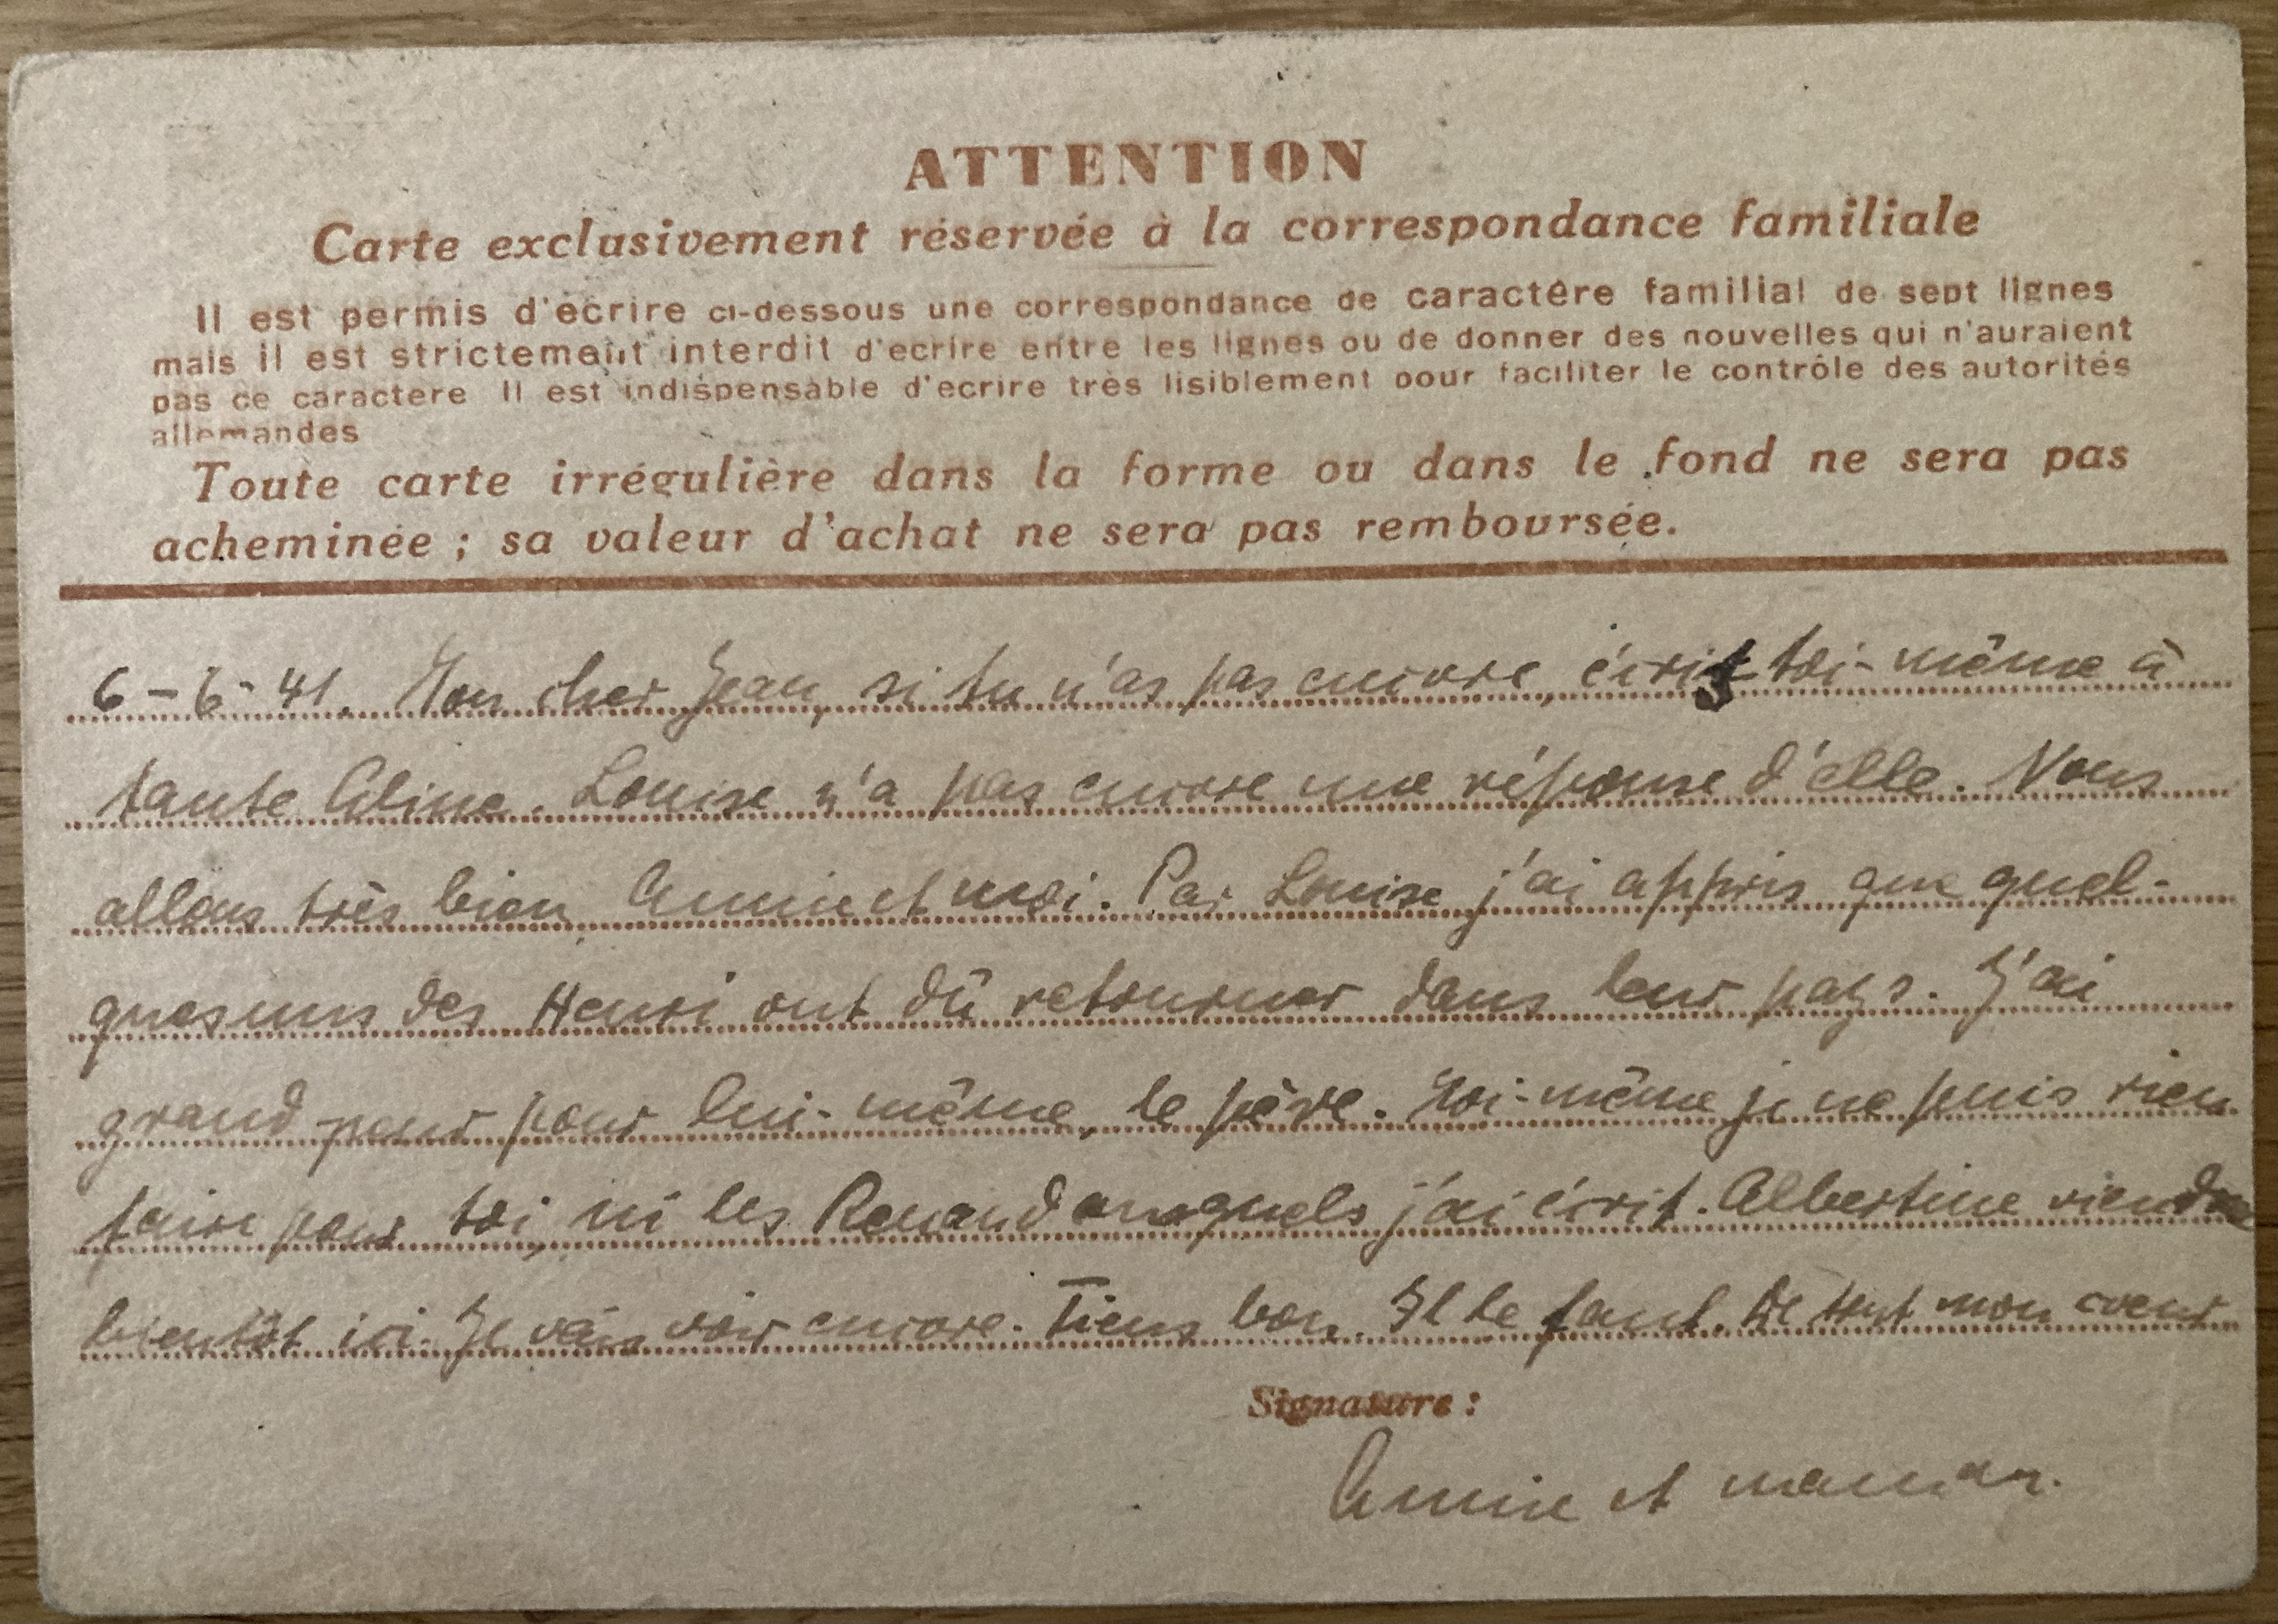 ATTENTION
Carte exclusivement réservée à la correspondance familiale
Il est permis d'écrire ci-dessous une correspondance de caractère familial de sept lignes
mais il est strictement interdit d'ecrire entre les lignes ou de donner des nouvelles qui n'auraient
pas ce caractere Il est indispensable d'ecrire très lisiblement pour faciliter le contrôle des autorités
allemandes
Toute carte irrégulière dans la forme ou dans le fond ne sera pas
acheminée ; sa valeur d'achat ne sera pas remboursée.
6 - 6 - 41. Mon cher Jean, si tu n'as pas encore, écris toi-même à
tante Aline. Louise n'a pas encore une réponse d'elle. Nous
allons très bien Annie et moi. Par Louise j'ai appris que quel-
ques uns des Henri ont dû retourner dans leur pays. J'ai
grand peur pour lui-même, le père. Moi-même je ne puis rien
faire pour toi, ni les Renaud auxquels j'ai écrit. Albertine viendra
bientôt ici. Je vais voir encore. Tiens bon. Il le faut. De tout mon coeur
Signature :
Annie et maman.